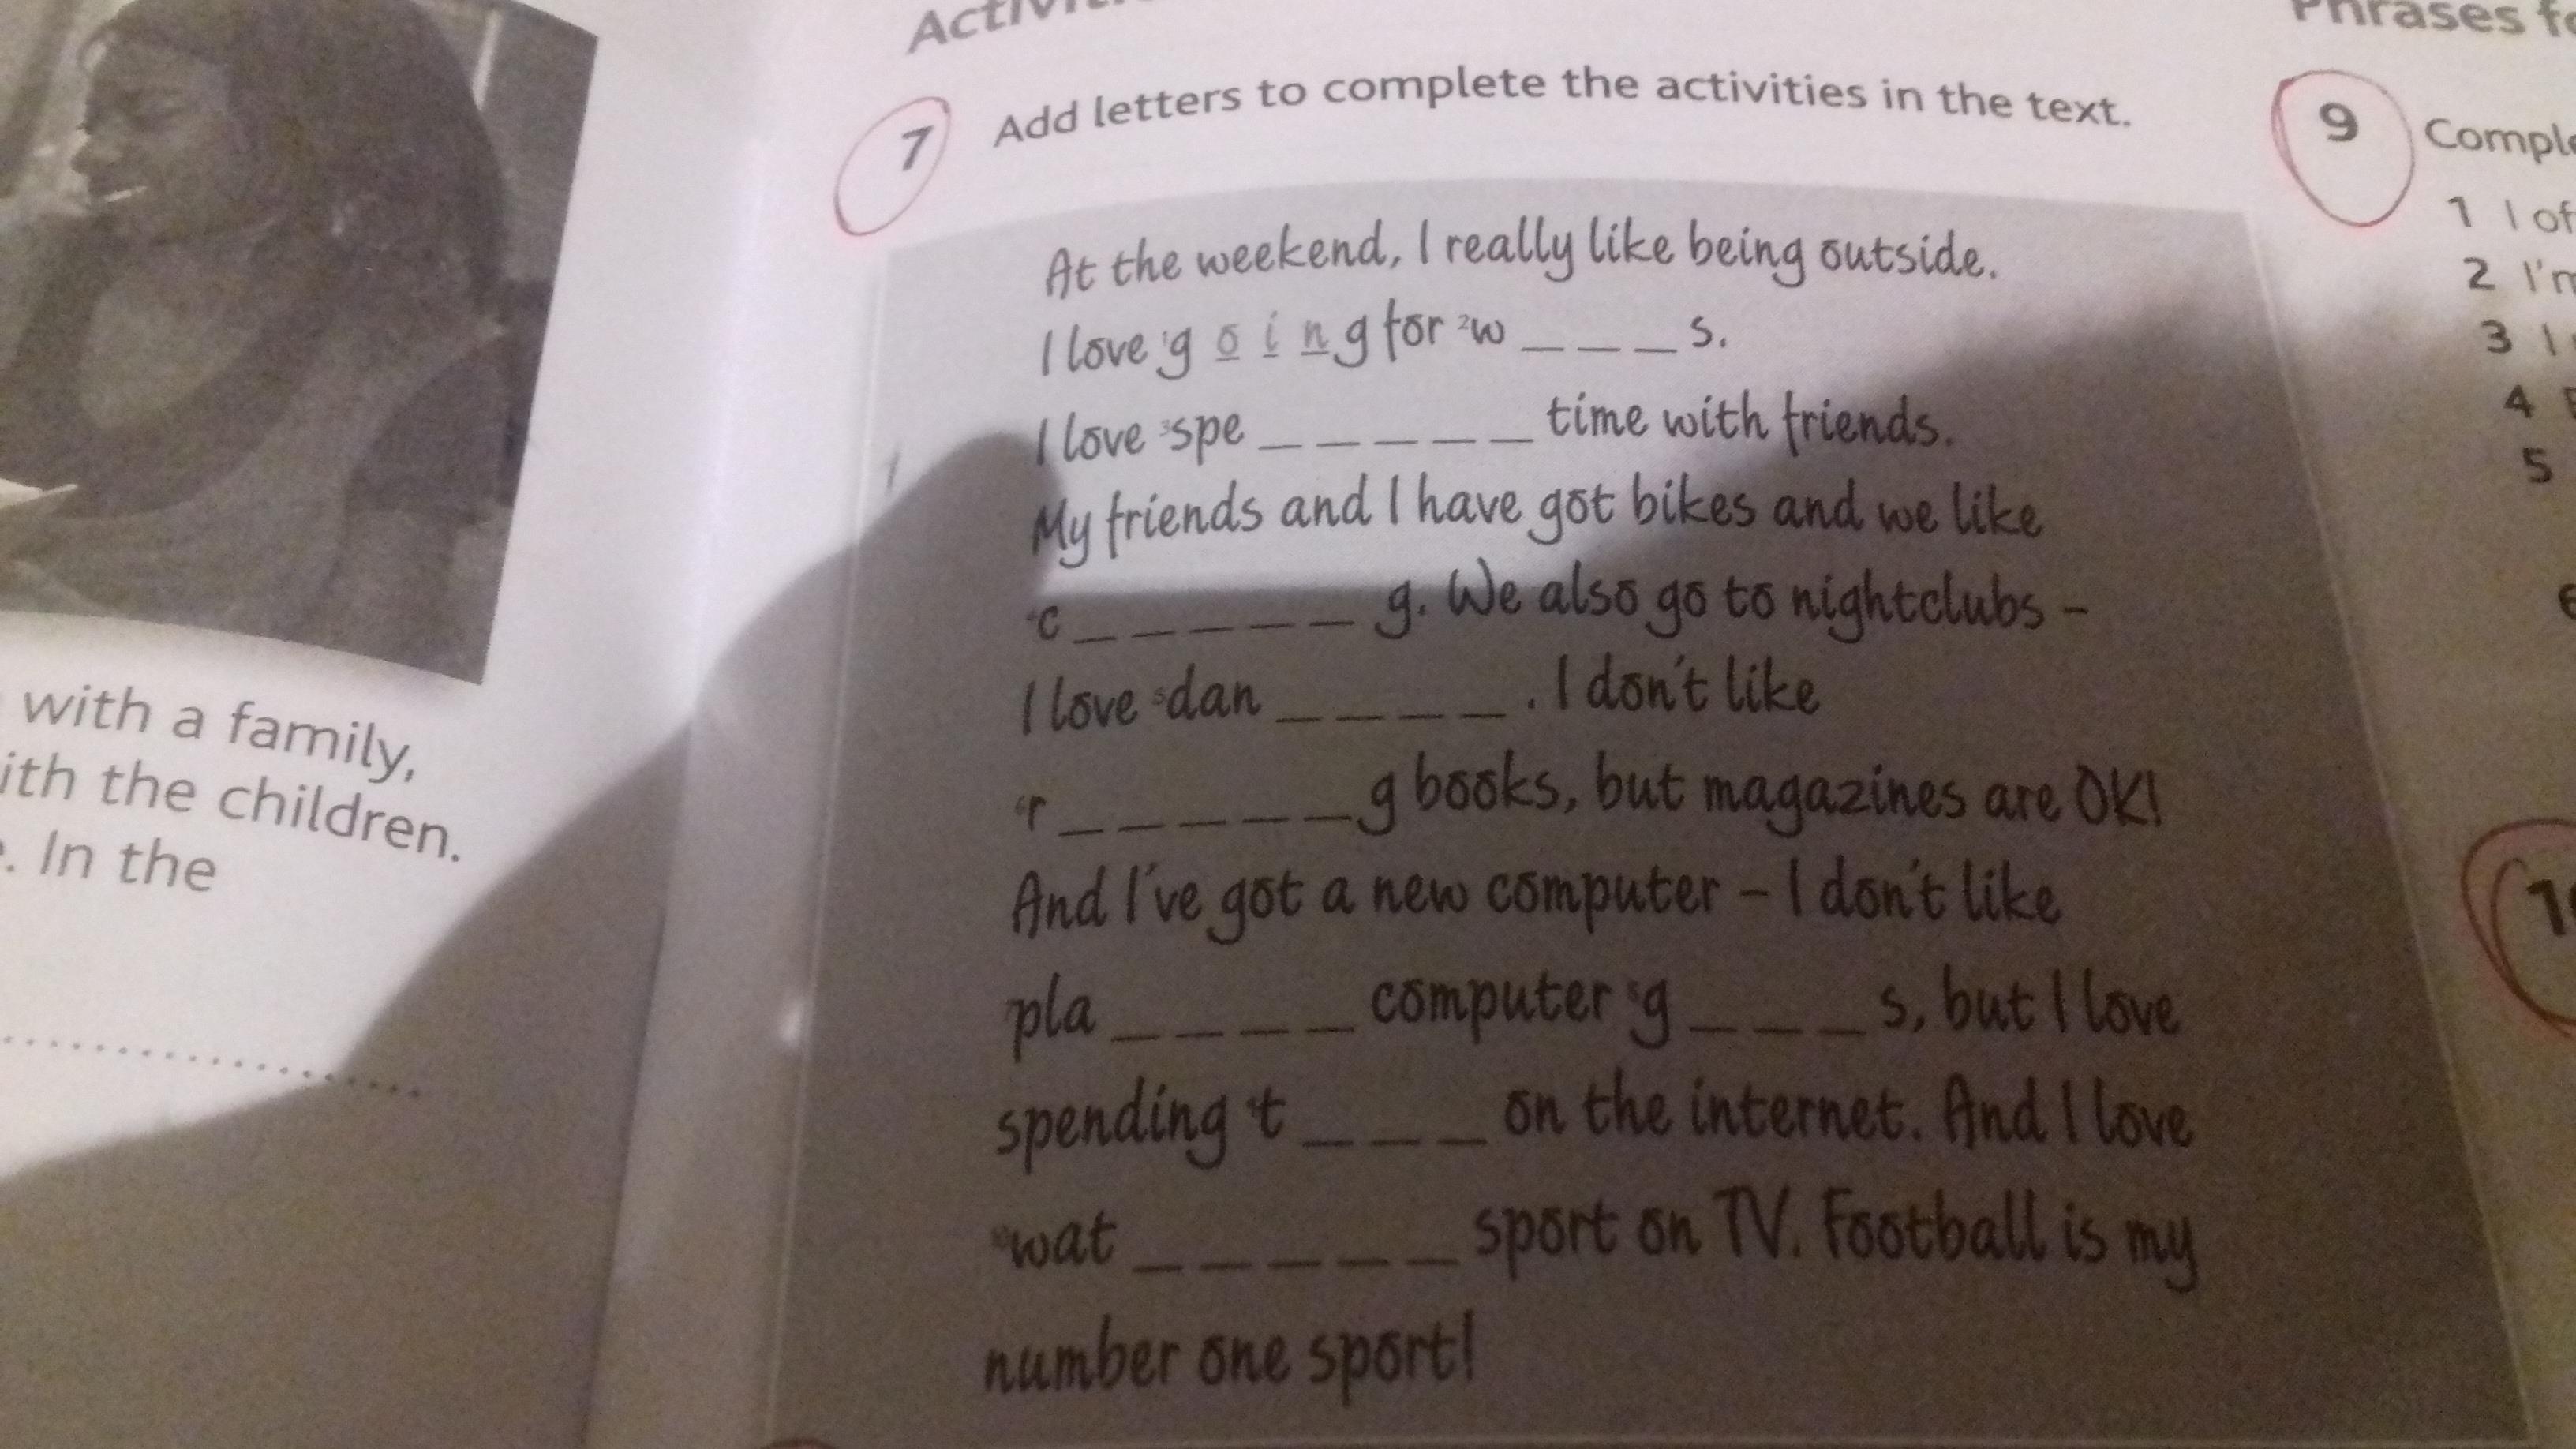 7 Add letters to complete the activities in the text.
At the weekend, I really like being outside.
I love 1g o i n g for 2w _ _ _ s.
I love 3spe _ _ _ _ _ time with friends.
My friends and I have got bikes and we like
4c _ _ _ _ _ g. We also go to nightclubs –
I love 5dan _ _ _ _ . I don't like
6r _ _ _ _ _ g books, but magazines are OK!
And I've got a new computer – I don't like
7pla _ _ _ _ computer 8g _ _ _ s, but I love
spending 9t _ _ _ on the internet. And I love
10wat _ _ _ _ _ sport on TV. Football is my
number one sport!
with a family,
with the children.
. In the
Phrases
9
1 I
2
3 I
4
5